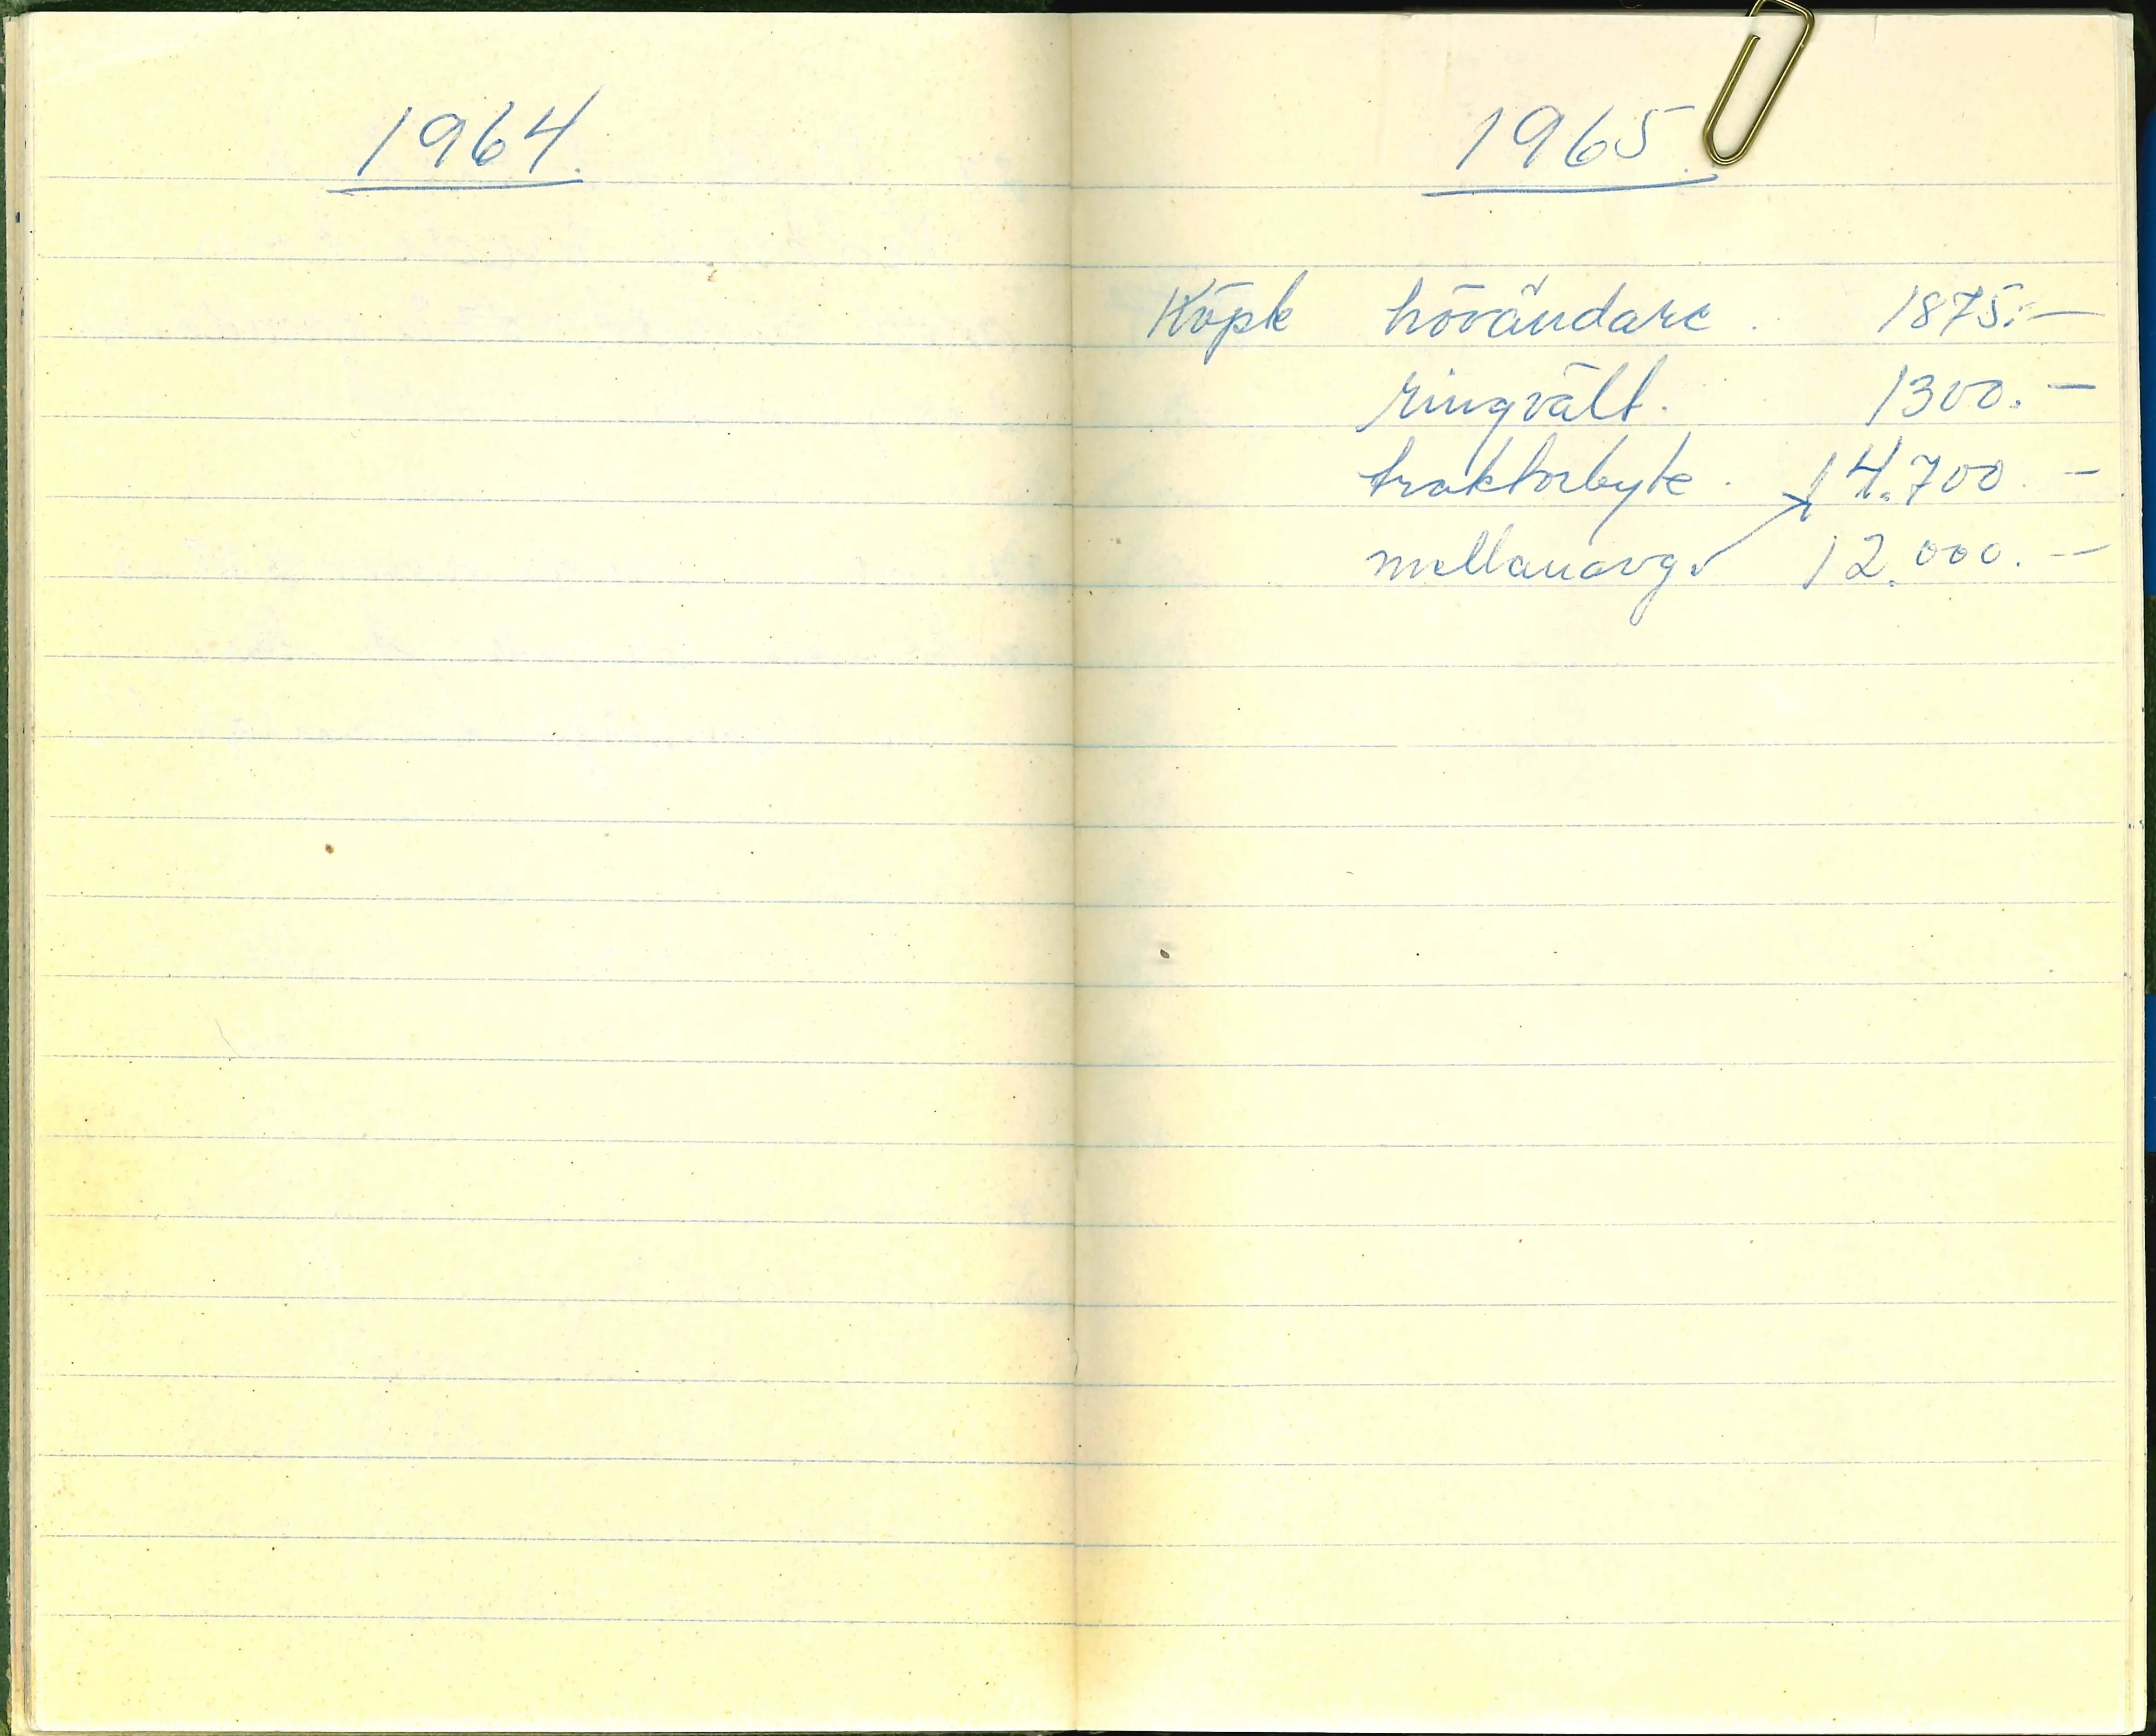 1964.
1965.
Köpt hövändare. 1875:-
ringvält. 1300.-
traktorbyte. 14.700.-
mellanavg. 12.000.-